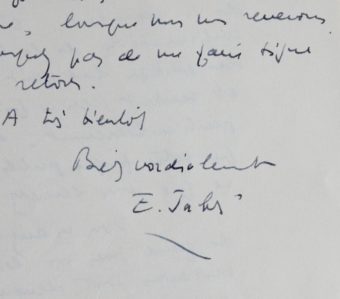 , lorsque nous nous reverrons
pas de me faire signe
retour.
A très bientôt
Bien cordialement
E. Jabès